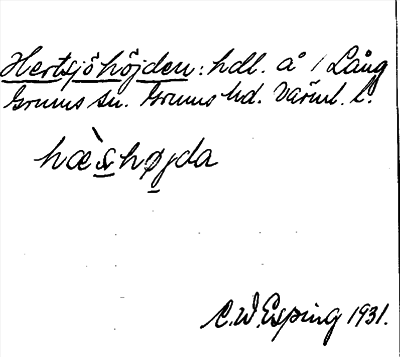 Hertsjöhöjden: hdl. å 1 Lång
Grums sn. Grums hd. Värml. l.
hæ̀s̲hø̲jda
C.W. Esping 1931.